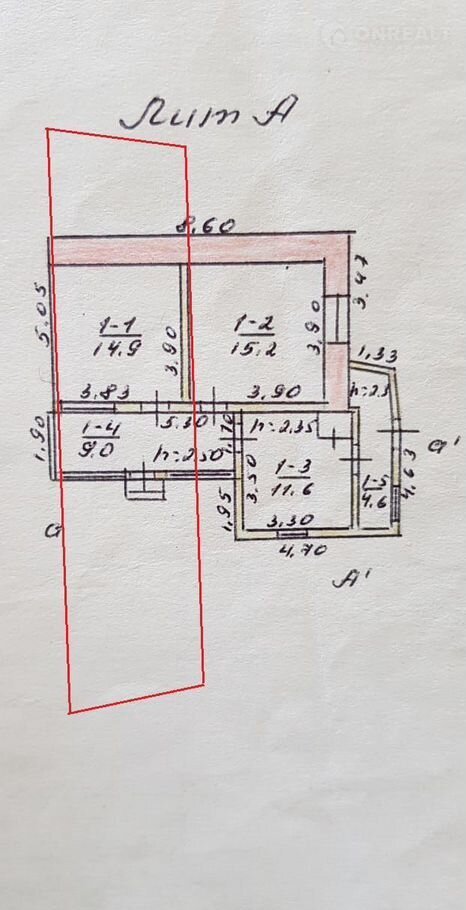 ONREALT
Лит А
8,60
5.05
3,47
1-1
14.9
3.90
1-2
15.2
3,90
1,33
3.83
3.90
h=2.3
1,90
1-4
9.0
5.30
1.70
h=2.35
h=2.50
1-3
11.6
3.50
1-5
4.6
4,63
а'
а
1,95
3.30
4.70
А'